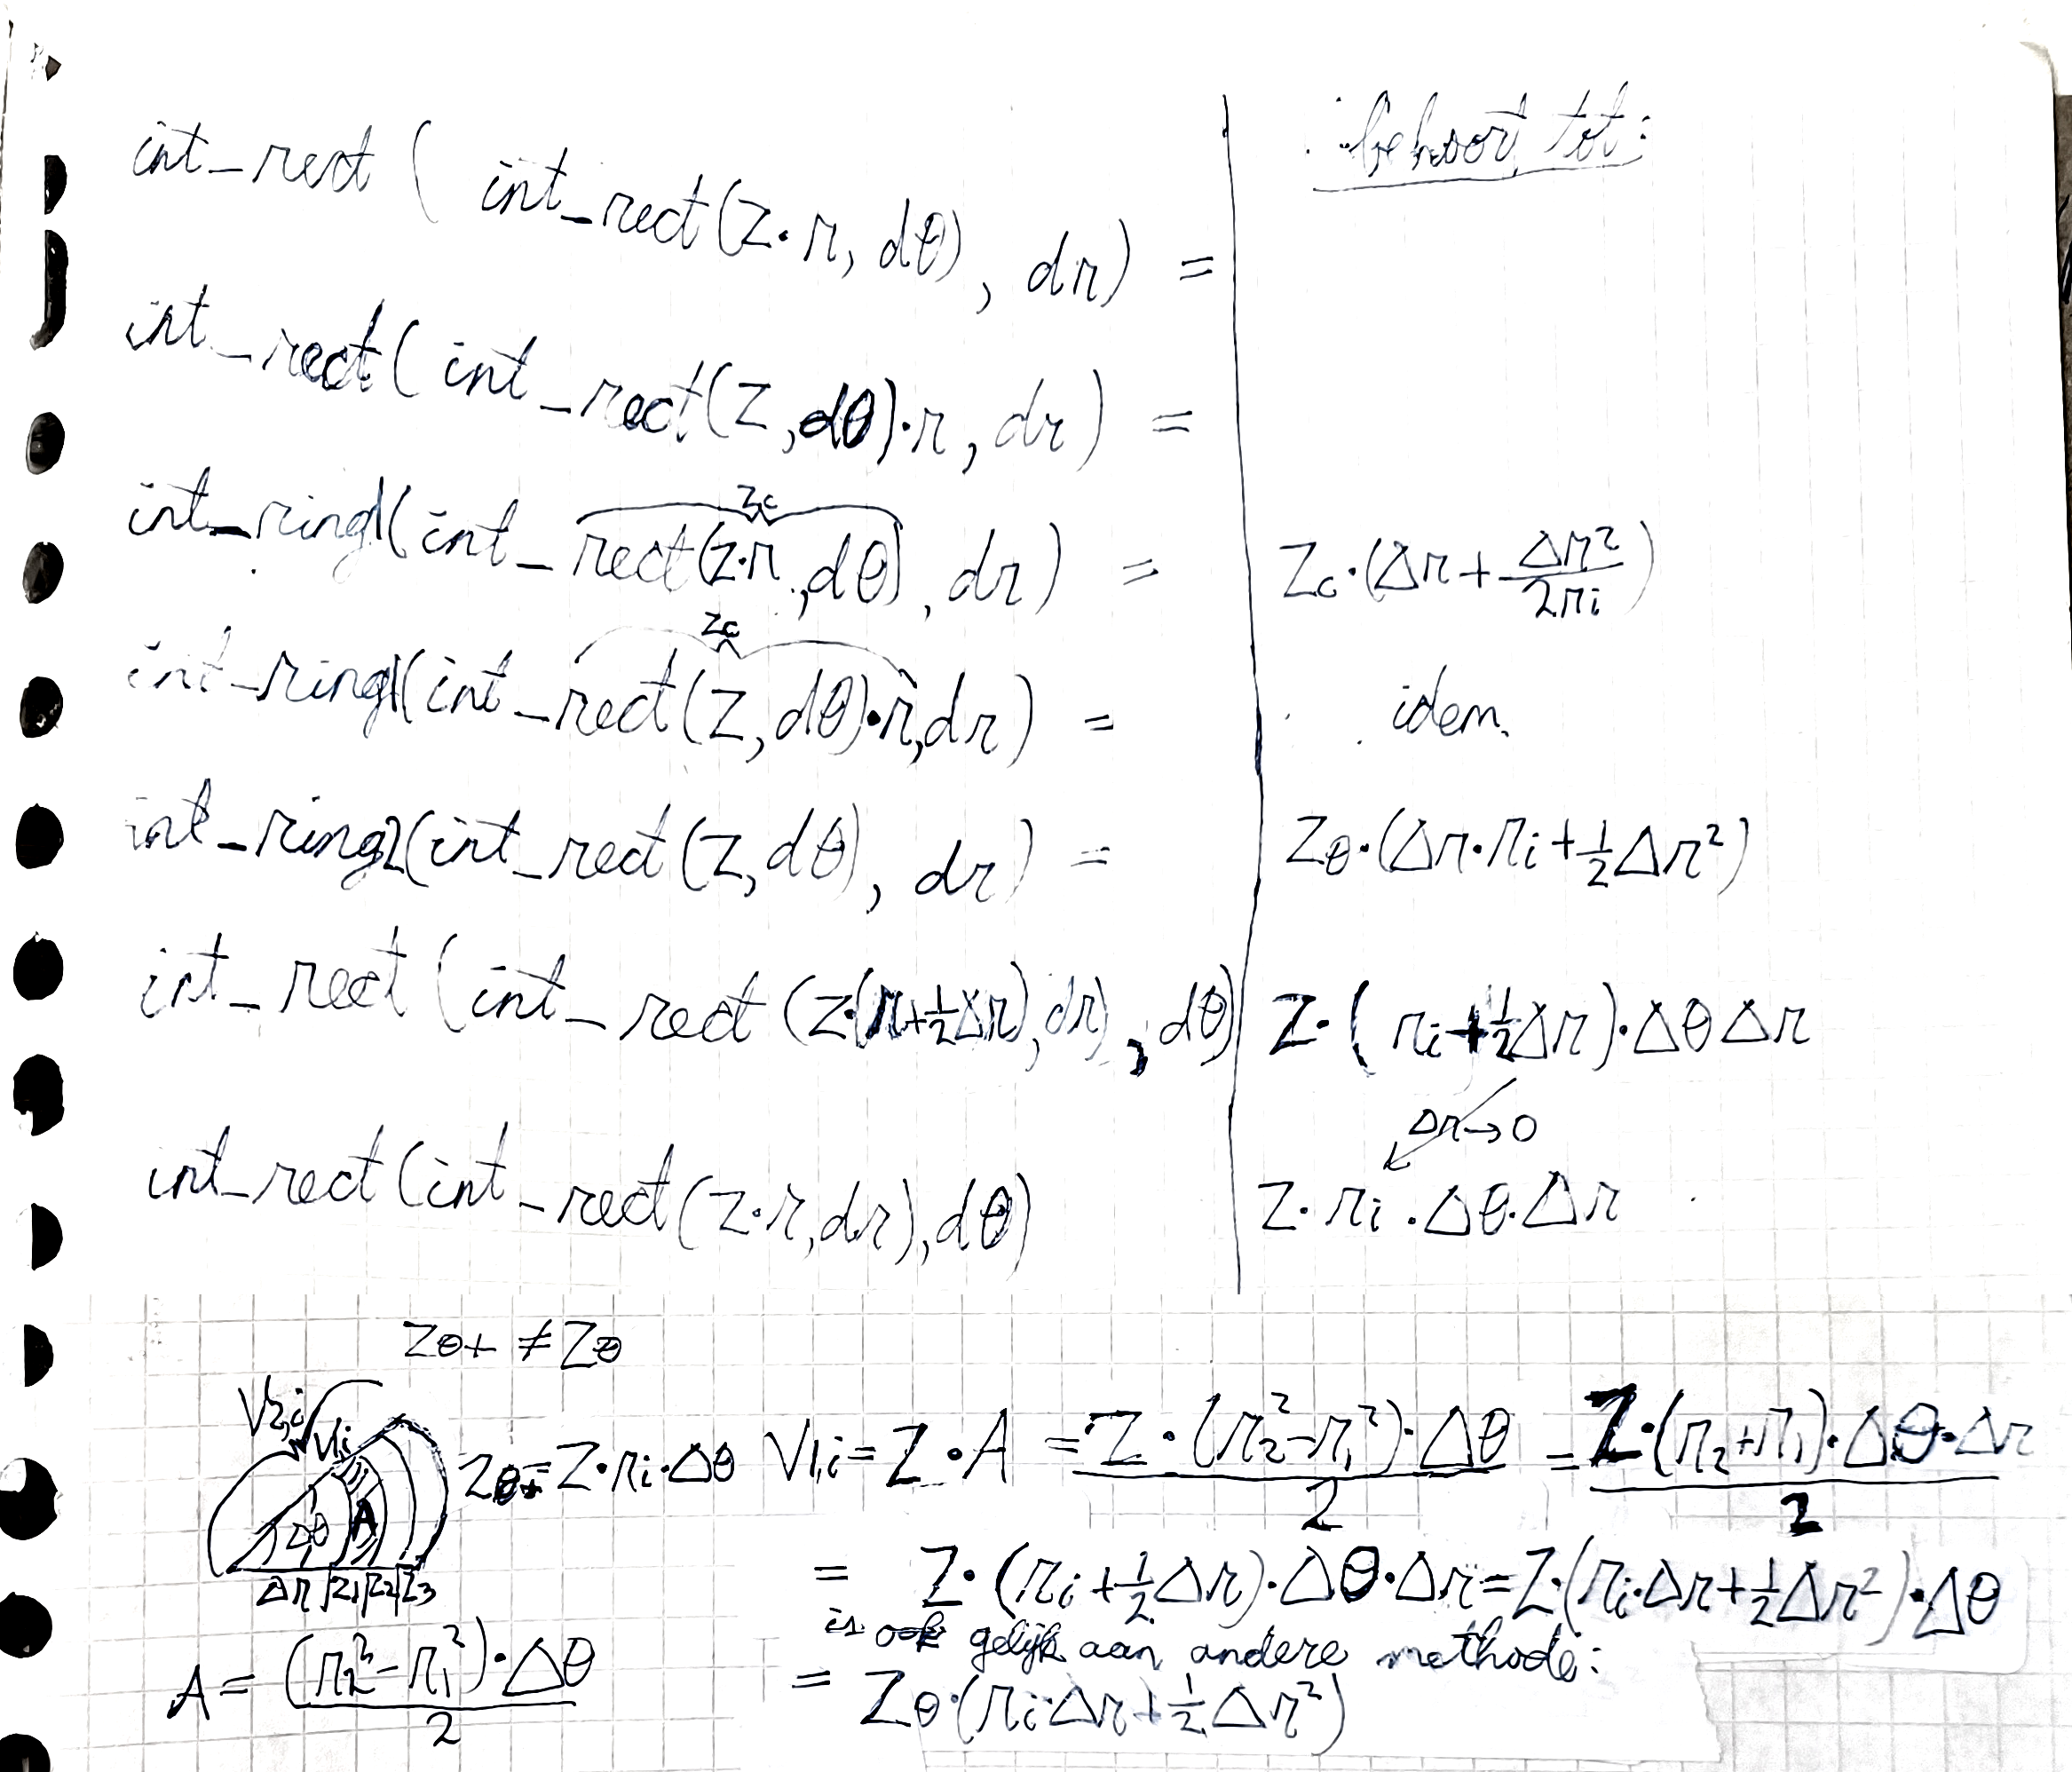 behoort tot:
int_rect ( int_rect(z·r, dθ), dr) =
int_rect( int_rect(z, dθ)·r, dr) =
zc
int_ring1(int_rect(z·r, dθ), dr) = Zc·(Δr + Δr²/2ri)
zc
int_ring1(int_rect(z, dθ)·r, dr) = idem.
int_ring2(int_rect(z, dθ), dr) = Zθ·(Δr·ri + ½Δr²)
int_rect (int_rect (z·(r+½Δr), dr), dθ) Z·(ri+½Δr)·ΔθΔr
Δr→0
int_rect(int_rect(z·r, dr), dθ) Z·ri·Δθ·Δr
Zθ+ ≠ Zθ
V2,i V1,i
Zθ+=Z·ri·Δθ V1,i = Z·A = Z·(r2²-r1²)·Δθ/2 = Z·(r2+r1)·Δθ·Δr/2
Δθ A
Δr z1 z2 z3
= Z·(ri+½Δr)·Δθ·Δr = Z·(ri·Δr+½Δr²)·Δθ
is ook gelijk aan andere methode:
A = (r2²-r1²)·Δθ/2
= Zθ·(ri·Δr+½Δr²)